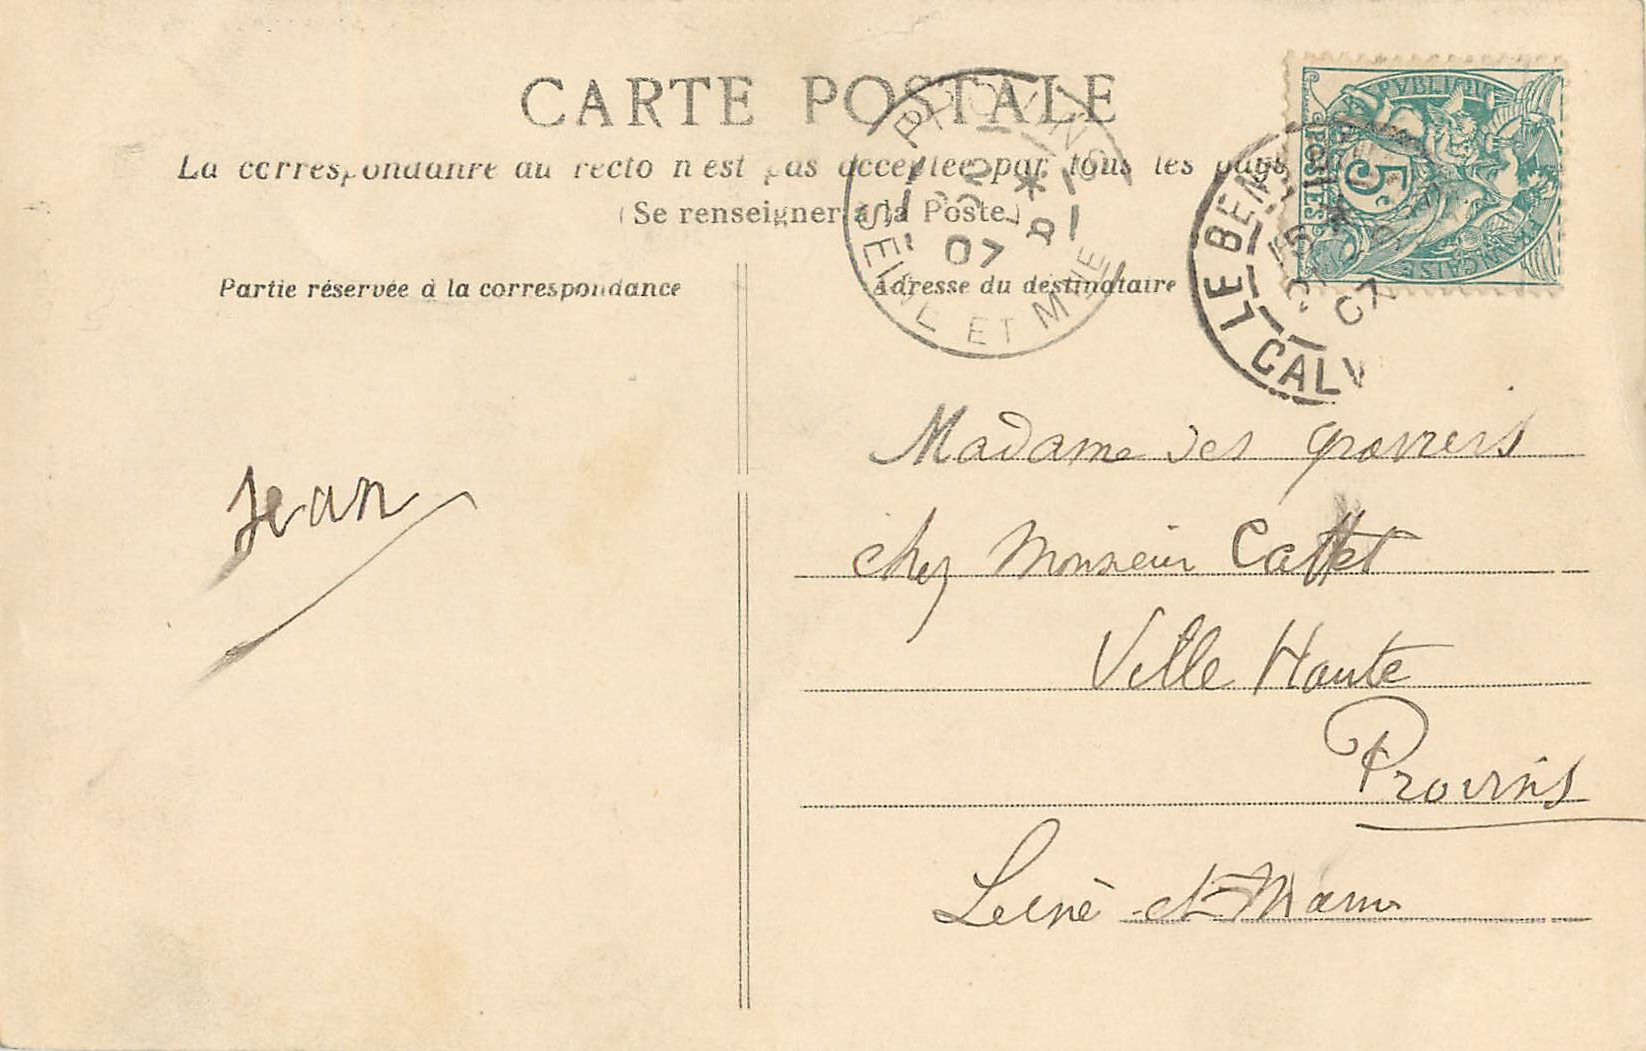 CARTE POSTALE
La correspondance au recto n'est pas acceptée par tous les pays
(Se renseigner à la Poste)
RÉPUBLIQUE FRANÇAISE
POSTES
5
PROVINS
* 07
SEINE ET MNE
LE BENY
15
07
CALV
Partie réservée à la correspondance
Adresse du destinataire
Jean
Madame des
chez Monsieur Cattet
Ville Haute
Provins
Seine et Marne